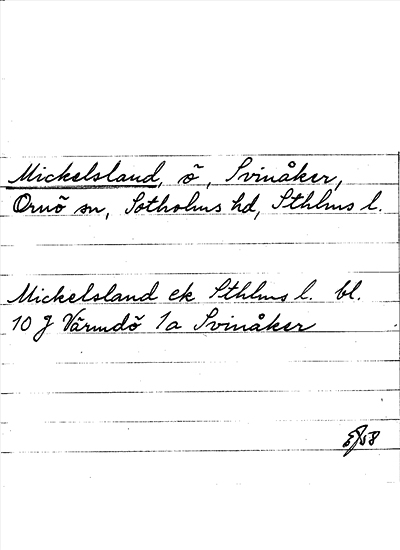 Mickelsland, ö, Svinåker,
Ornö sn, Sotholms hd, Sthlms l.
Mickelsland ek Sthlms l. bl.
10 J Värmdö 1a Svinåker